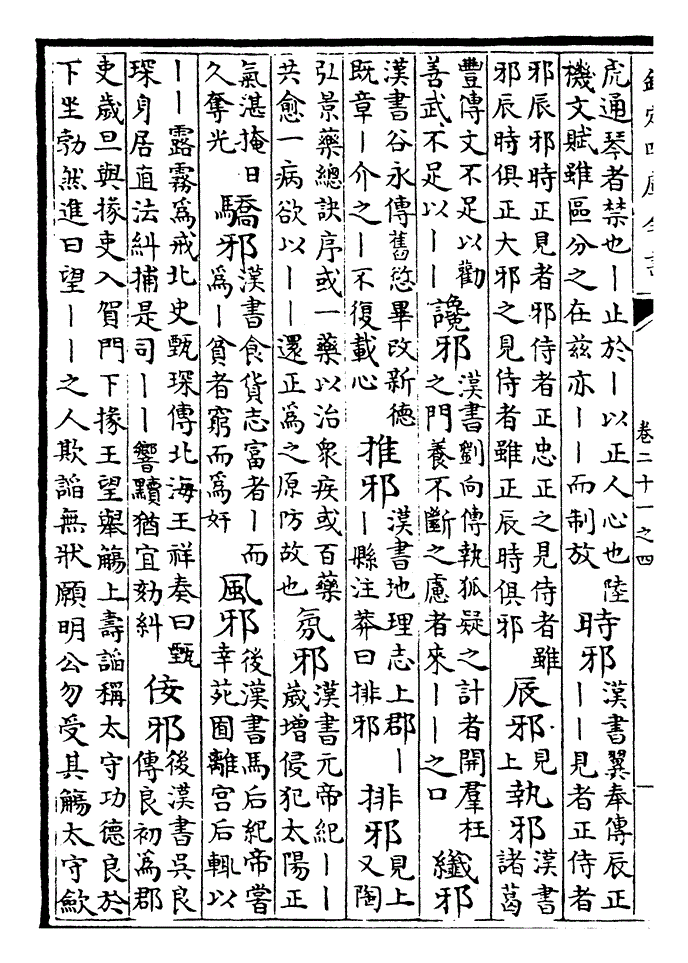 欽定四庫全書
卷二十一之四
虎通琴者禁也｜止於｜以正人心也陸
機文賦雖區分之在兹亦｜｜而制放
時邪
漢書翼奉傳辰正
｜｜見者正侍者
邪辰邪時正見者邪侍者正忠正之見侍者雖
邪辰時俱正大邪之見侍者雖正辰時俱邪
辰邪
見
上
執邪
漢書
諸葛
豐傳文不足以勸
善武不足以｜｜
讒邪
漢書劉向傳執狐疑之計者開羣枉
之門養不斷之慮者來｜｜之口
纖邪
漢書谷永傳舊愆畢改新德
既章｜介之｜不復載心
推邪
漢書地理志上郡｜
｜縣注莽曰排邪
排邪
見上
又陶
弘景藥總訣序或一藥以治衆疾或百藥
共愈一病欲以｜｜還正爲之原防故也
氛邪
漢書元帝紀｜｜
歲增侵犯太陽正
氣湛掩日
久奪光
驕邪
漢書食貨志富者｜而
爲｜貧者窮而爲奸
風邪
後漢書馬后紀帝嘗
幸苑囿離宮后輒以
｜｜露霧爲戒北史甄琛傳北海王祥奏曰甄
琛身居直法糾捕是司｜｜響黷猶宜劾糾
佞邪
後漢書吳良
傳良初爲郡
吏歲旦與掾吏入賀門下掾王望舉觴上壽謟稱太守功德良於
下坐勃然進曰望｜｜之人欺謟無狀願明公勿受其觴太守歛